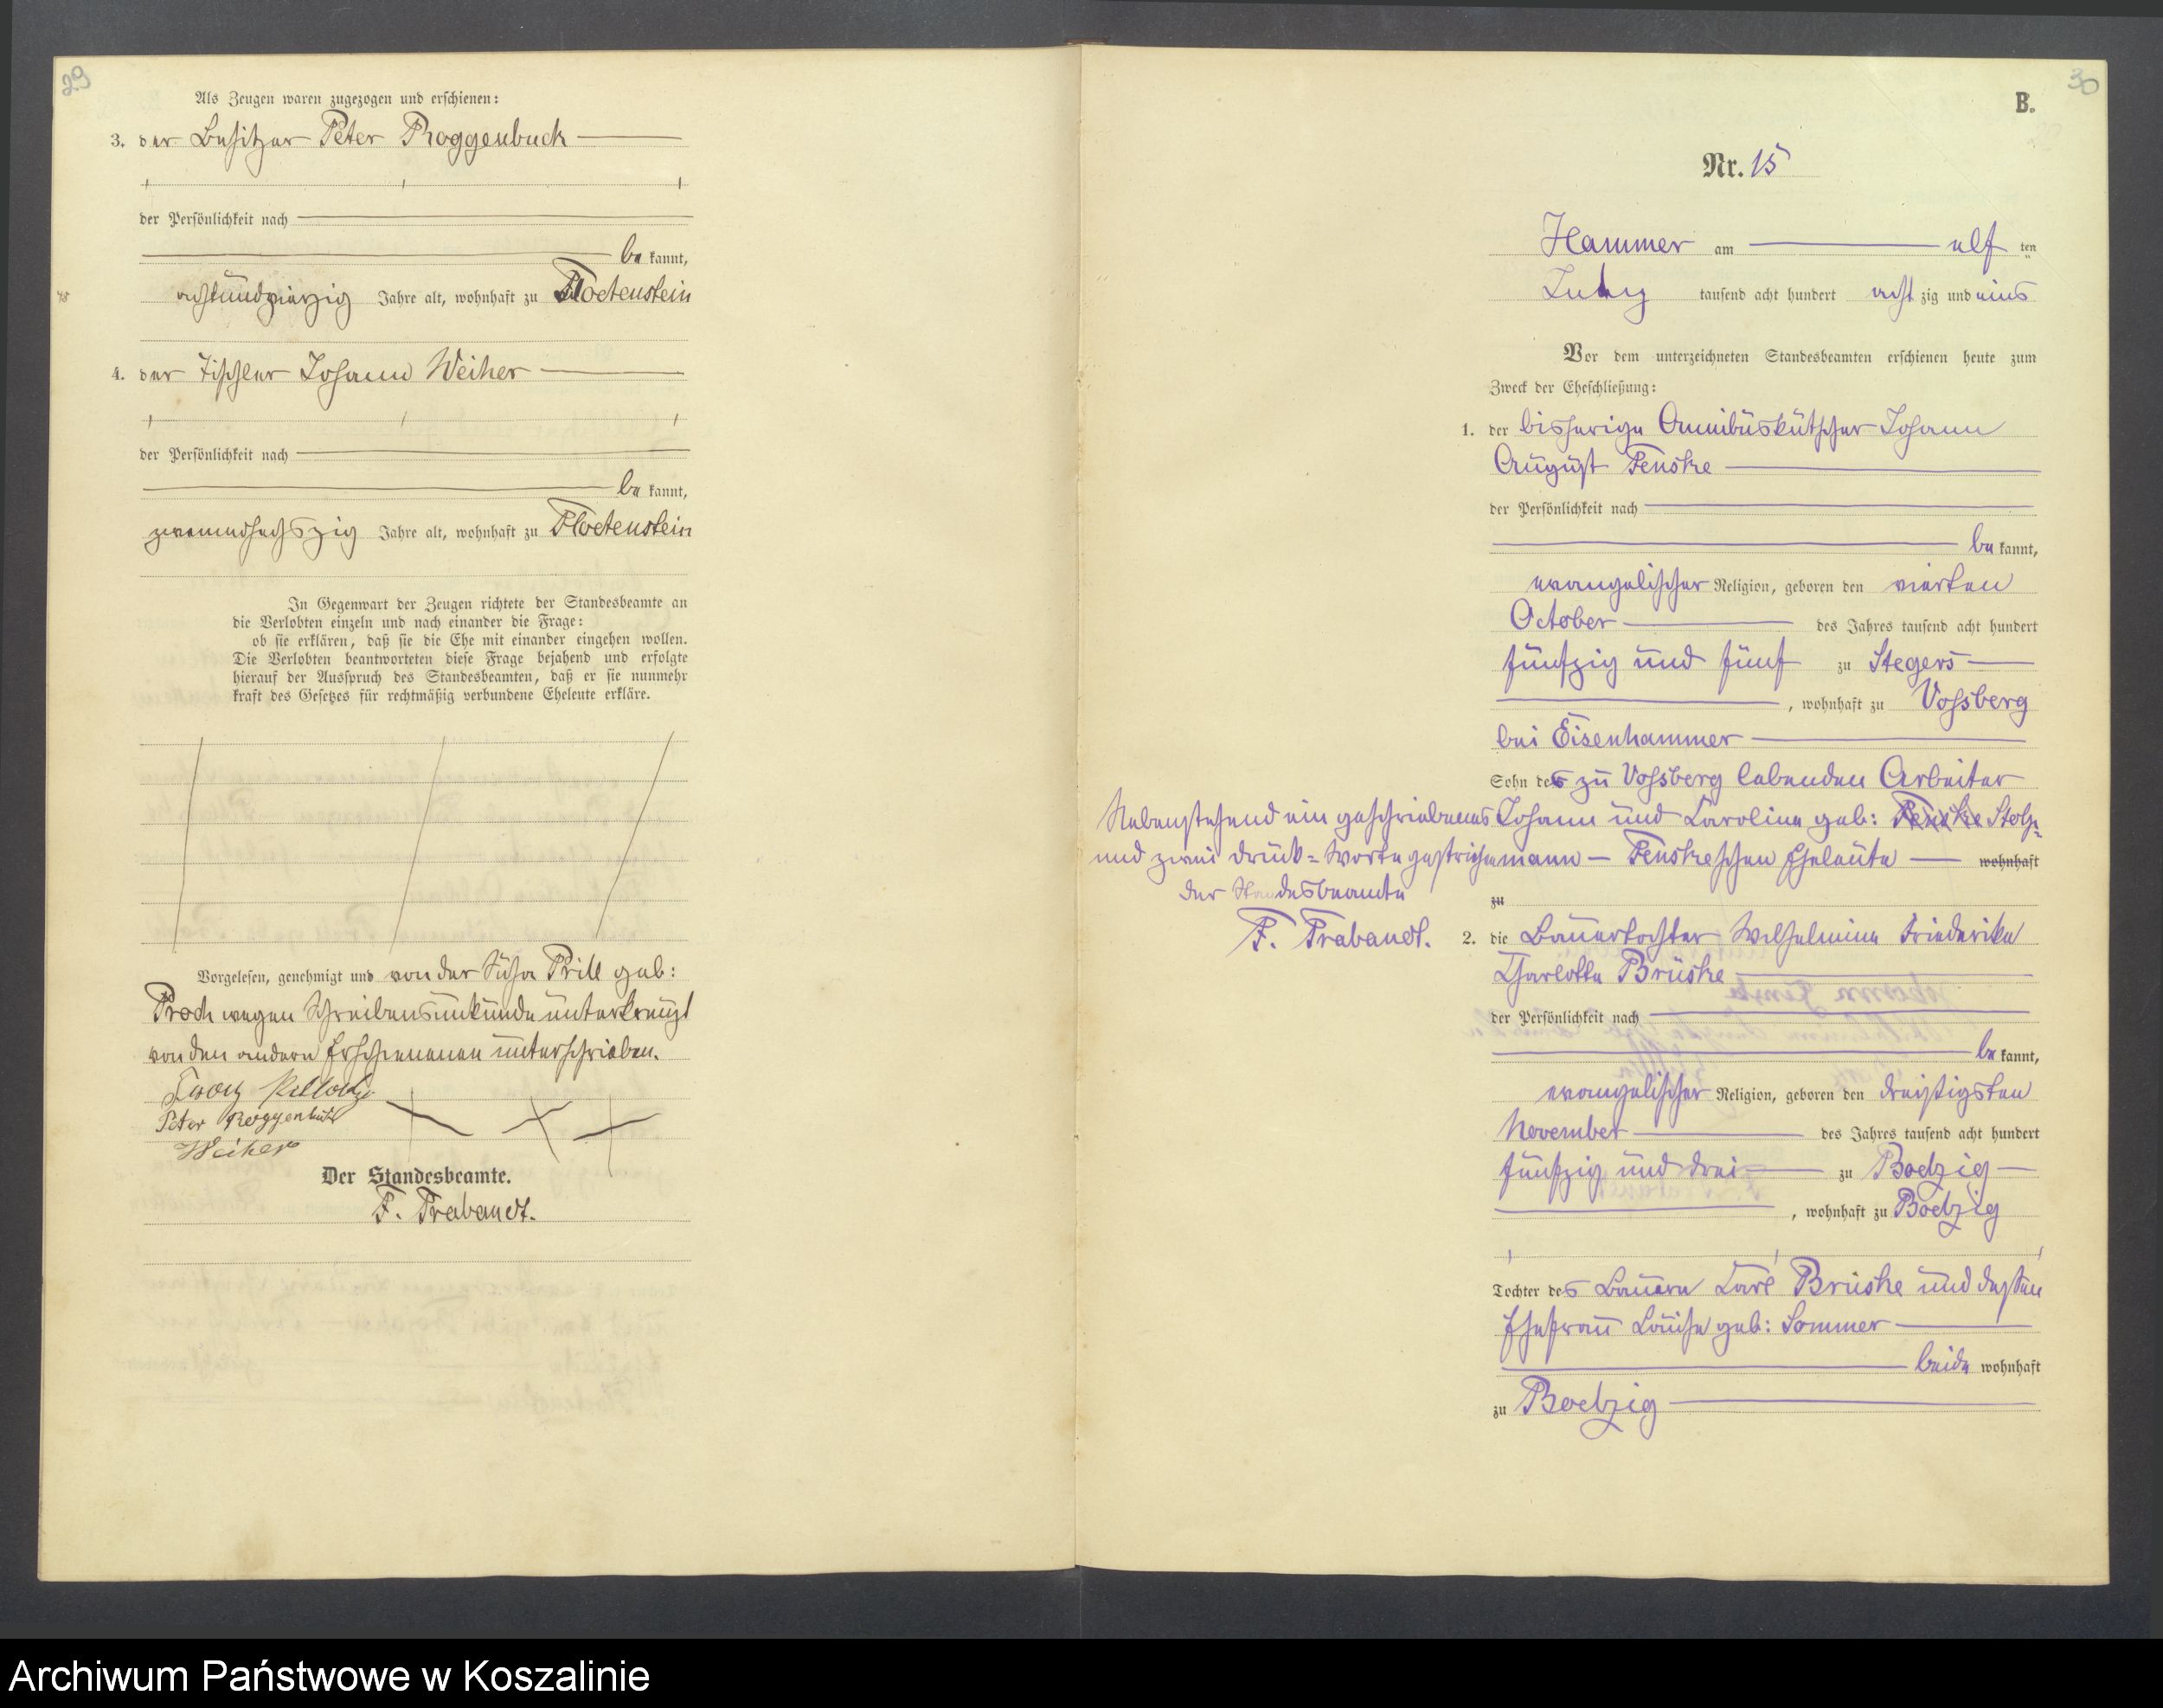 29
Als Zeugen waren zugezogen und erschienen:
3. der Besitzer Peter Roggenbuck
der Persönlichkeit nach
be kannt,
48
achtundvierzig Jahre alt, wohnhaft zu Floetenstein
4. der Tischler Johann Weiher
der Persönlichkeit nach
be kannt,
zweiundsechszig Jahre alt, wohnhaft zu Floetenstein
In Gegenwart der Zeugen richtete der Standesbeamte an
die Verlobten einzeln und nach einander die Frage:
ob sie erklären, daß sie die Ehe mit einander eingehen wollen.
Die Verlobten beantworteten diese Frage bejahend und erfolgte
hierauf der Ausspruch des Standesbeamten, daß er sie nunmehr
kraft des Gesetzes für rechtmäßig verbundene Eheleute erkläre.
Vorgelesen, genehmigt und von der Prill geb:
wegen Schreibensunkunde unterkreuzt
von den andern Erschienenen unterschrieben.
Peter Roggenbuck
Weiher
Der Standesbeamte.
F. Trabandt.
30
B.
Nr. 15
Hammer am elf ten
July tausend acht hundert acht zig und eins
Vor dem unterzeichneten Standesbeamten erschienen heute zum
Zweck der Eheschließung:
1. der bisherige Omnibuskutscher Johann
August Fenske
der Persönlichkeit nach
be kannt,
evangelischer Religion, geboren den vierten
October des Jahres tausend acht hundert
fünfzig und fünf zu Stegers
, wohnhaft zu Vossberg
bei Eisenhammer
Sohn des zu Vossberg lebenden Arbeiter
Johann und Caroline geb: Fenske Stolz-
mann – Fenskeschen Eheleute wohnhaft
zu
Nebenstehend ein geschriebenes
und zwei Druck-Worte gestrichen
der Standesbeamte
F. Trabandt.
2. die Bauertochter Wilhelmine Friederike
Charlotte Brüske
der Persönlichkeit nach
be kannt,
evangelischer Religion, geboren den dreißigsten
November des Jahres tausend acht hundert
fünfzig und drei zu Boelzig
, wohnhaft zu Boelzig
Tochter des Bauern Carl Brüske und dessen
Ehefrau Louise geb: Sommer
beide wohnhaft
zu Boelzig
Archiwum Państwowe w Koszalinie